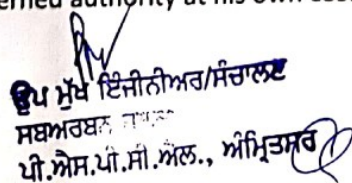 authority at his own
ਉਪ ਮੁੱਖ ਇੰਜੀਨੀਅਰ/ਸੰਚਾਲਣ
ਸਬਅਰਬਨ
ਪੀ.ਐਸ.ਪੀ.ਸੀ.ਐਲ., ਅੰਮ੍ਰਿਤਸਰ